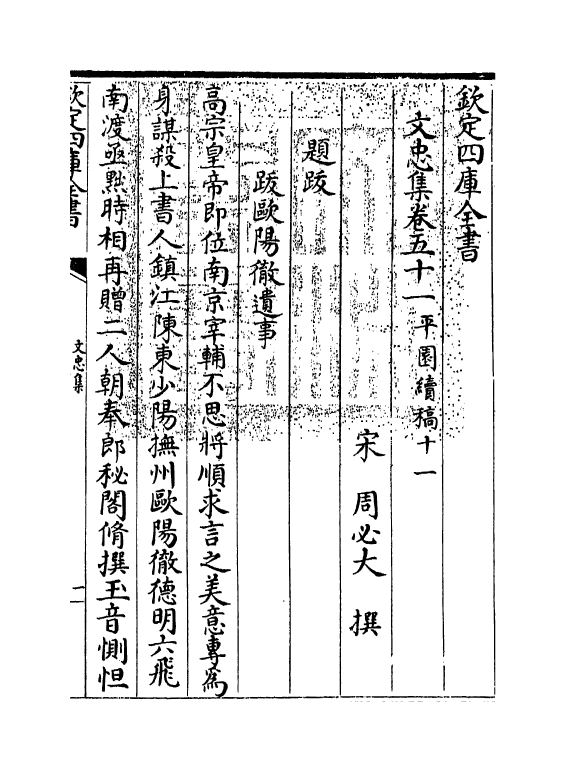 欽定四庫全書
文忠集卷五十一 平園續稿十一
宋 周必大 撰
題跋
跋歐陽徹遺事
高宗皇帝即位南京宰輔不思將順求言之美意專為
身謀殺上書人鎮江陳東少陽撫州歐陽徹德明六飛
南渡亟黜時相再贈二人朝奉郎秘閣脩撰玉音惻怛
欽定四庫全書
文忠集
一